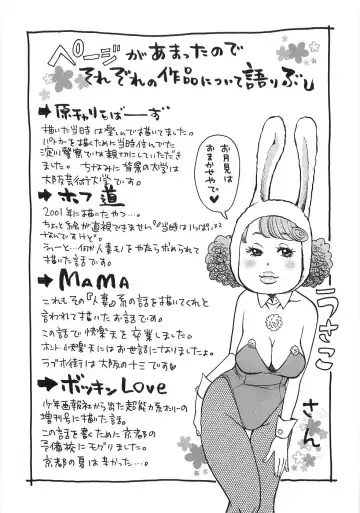 ページがあまったので
それぞれの作品について語りぶし
➡原チャリもばーず
描いた当時は楽しんで描いてました。
パトカーを描くために当時住んでた
淀川警察では親切にしていただき
ました。ちなみに背景の大学は
大阪芸術大学です。
➡ホフ道
2001年に描いたやつ…。
ちょっと絵が直視できません。当時はいっぱいっ
さないですけど。
うぅーと…何か人妻モノをやたらホめられて
描いた話です。
➡MAMA
これも先の『人妻』系の話を描いてくれと
言われて描いたお話です。
この話で快楽天を卒業しました。
ホント、快楽天にはお世話になりましたよ。
ラブホ街は大阪の十三です♥
➡ボッキンLove
少年画報社から出た超能力系エロリーの
増刊号に描いた話。
この話を書くために京都の
予備校にモグリました。
京都の夏は辛かった…。
お月見は
おまかせやで♥
うさこ
さん